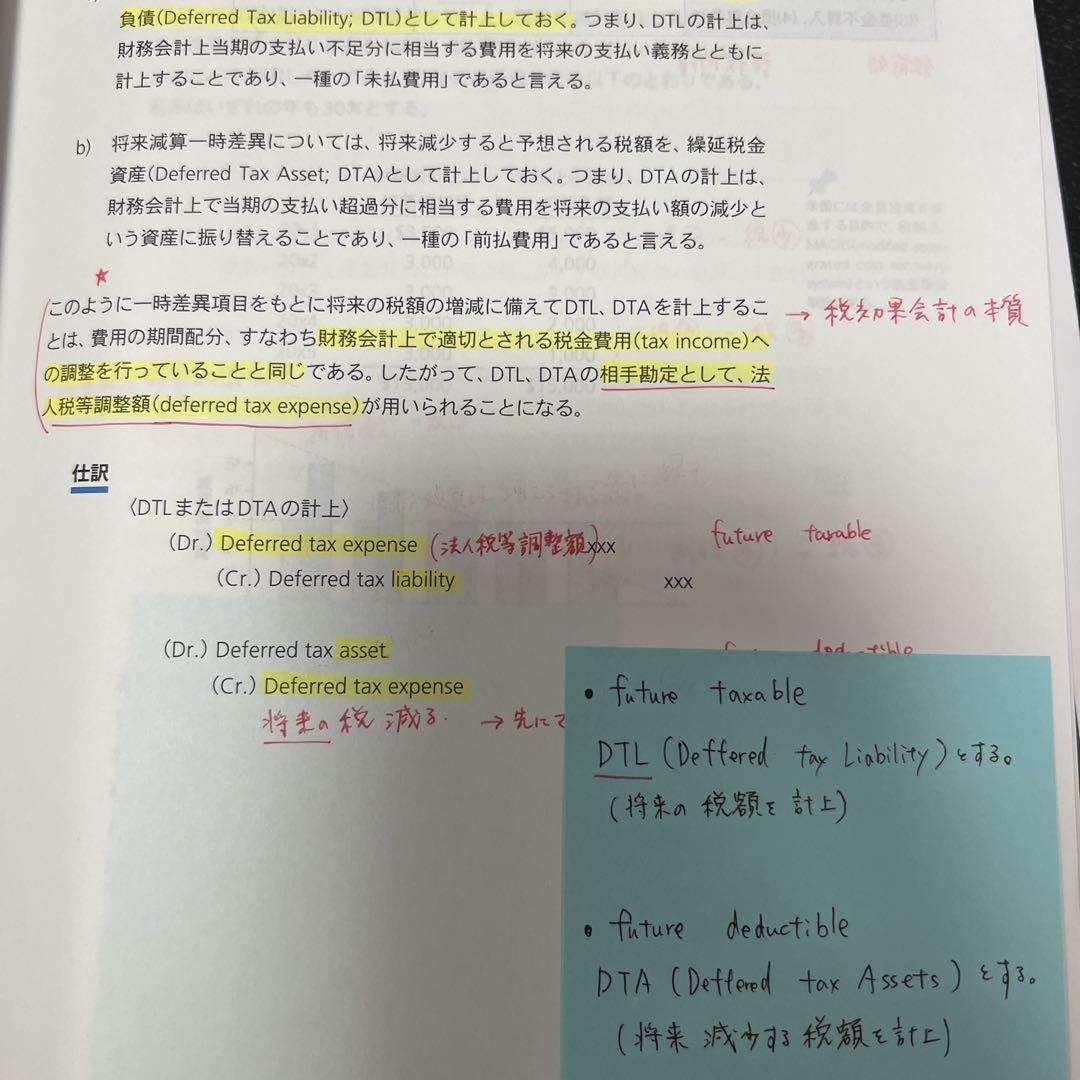 負債(Deferred Tax Liability; DTL)として計上しておく。つまり、DTLの計上は、
財務会計上当期の支払い不足分に相当する費用を将来の支払い義務とともに
計上することであり、一種の「未払費用」であると言える。
b) 将来減算一時差異については、将来減少すると予想される税額を、繰延税金
資産(Deferred Tax Asset; DTA)として計上しておく。つまり、DTAの計上は、
財務会計上で当期の支払い超過分に相当する費用を将来の支払い額の減少と
いう資産に振り替えることであり、一種の「前払費用」であると言える。
このように一時差異項目をもとに将来の税額の増減に備えてDTL、DTAを計上するこ
とは、費用の期間配分、すなわち財務会計上で適切とされる税金費用(tax income)へ
の調整を行っていることと同じである。したがって、DTL、DTAの相手勘定として、法
人税等調整額(deferred tax expense)が用いられることになる。
→ 税効果会計の本質
仕訳
〈DTLまたはDTAの計上〉
(Dr.) Deferred tax expense (法人税等調整額)xxx future taxable
(Cr.) Deferred tax liability xxx
(Dr.) Deferred tax asset future deductible
(Cr.) Deferred tax expense
将来の税減る. → 先に
• future taxable
DTL (Deffered tax Liability)とする。
(将来の税額を計上)
• future deductible
DTA (Deffered tax Assets)とする。
(将来減少する税額を計上)